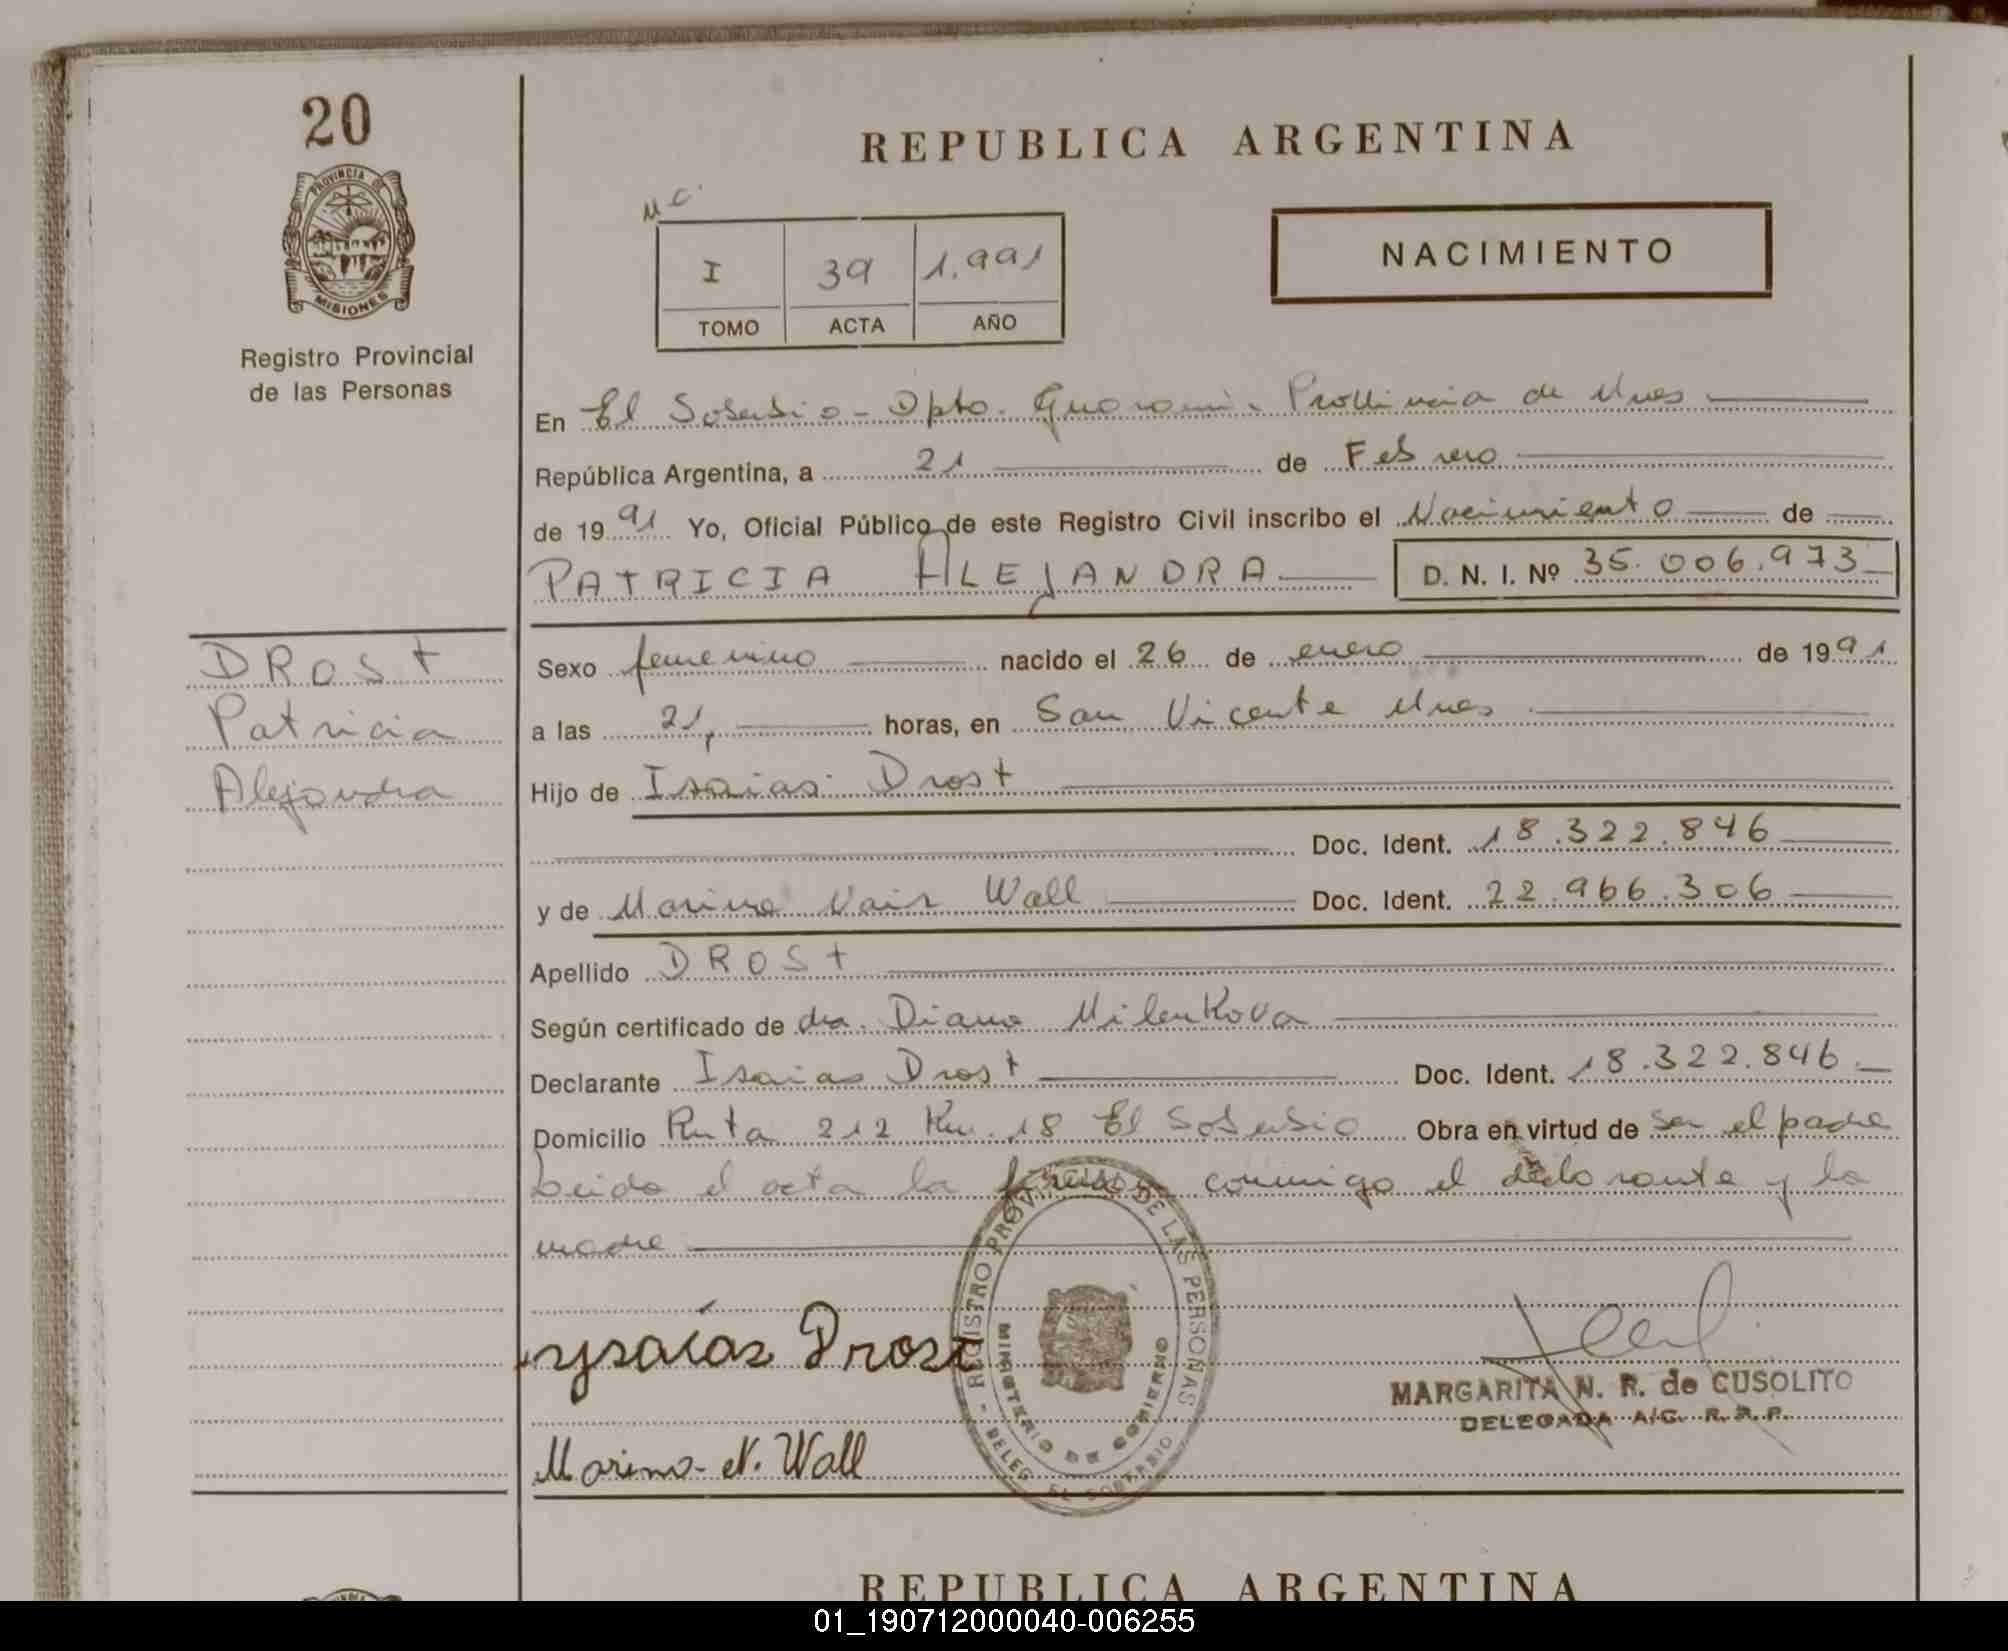 20
PROVINCIA DE
MISIONES
Registro Provincial
de las Personas
DROSt
Patricia
Alejandra
REPUBLICA ARGENTINA
I 39 1.991
TOMO ACTA AÑO
NACIMIENTO
En El Soberbio - Dpto. Guarani. Provincia de Mnes
República Argentina, a 21 de Febrero
de 1991 Yo, Oficial Público de este Registro Civil inscribo el Nacimiento de
PATRICIA ALEJANDRA D. N. I. Nº 35.006.973
Sexo femenino nacido el 26 de enero de 1991
a las 21, horas, en San Vicente Mnes
Hijo de Isaias Drost
Doc. Ident. 18.322.846
y de Marina Nair Wall Doc. Ident. 22.966.306
Apellido DROSt
Según certificado de dra. Diana Milenkova
Declarante Isaias Drost Doc. Ident. 18.322.846
Domicilio Ruta 212 Km. 18 El Soberbio Obra en virtud de ser el padre
Leida el acta la firman conmigo el declarante y la
madre
REGISTRO PROV. DE LAS PERSONAS - DELEG. EL SOBERBIO
MINISTERIO DE GOBIERNO
ysaías Drost
MARGARITA N. R. de CUSOLITO
DELEGADA A/C. R. R. P.
Marina N. Wall
REPUBLICA ARGENTINA
01_190712000040-006255